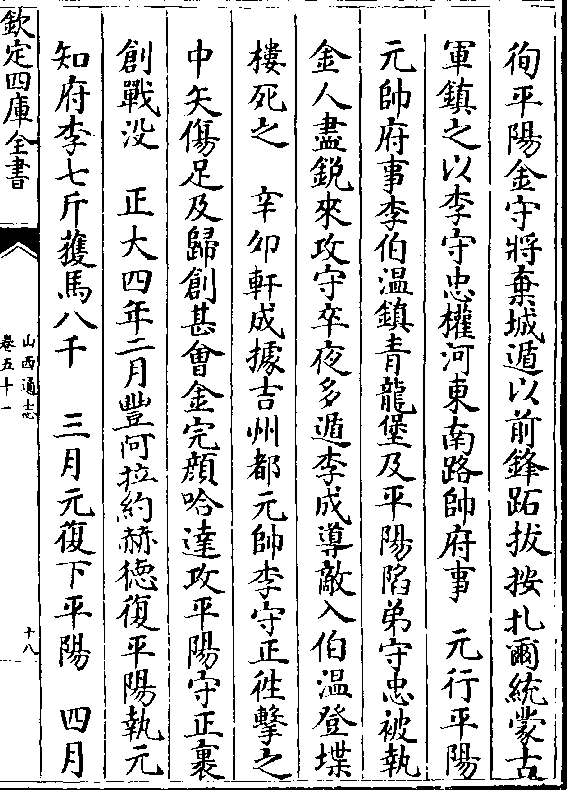 徇平陽金守將棄城遁以前鋒跖拔按扎爾統蒙古
軍鎮之以李守忠權河東南路帥府事　元行平陽
元帥府事李伯温鎮青龍堡及平陽陷弟守忠被執
金人盡鋭來攻守卒夜多遁李成導敵入伯温登堞
樓死之　辛卯軒成據吉州都元帥李守正徃擊之
中矢傷足及歸創甚會金完顔哈達攻平陽守正裹
創戰没　正大四年二月豐阿拉約赫德復平陽執元
知府李七斤獲馬八千　三月元復下平陽　四月
欽定四庫全書
山西通志
卷五十一
十八